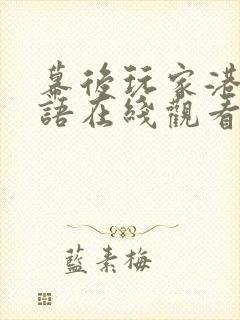 幕後玩家港
語在綫觀看
藍素梅